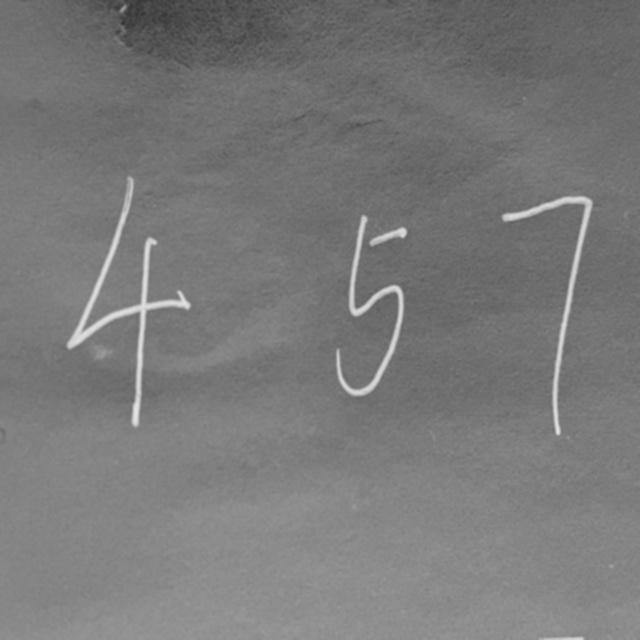 4 5 7